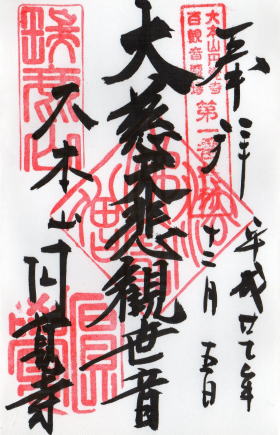 大本山円覚寺
百観音霊場
第一番
奉拝
平成廿七年
十二月五日
大慈大悲観世音
瑞鹿山
大本山円覚寺